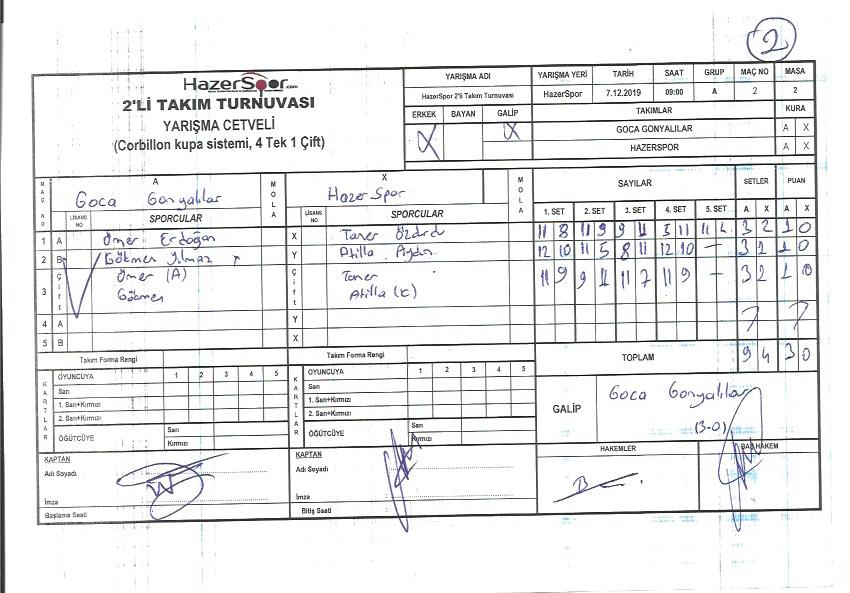 2
HazerSpor.com
2'Lİ TAKIM TURNUVASI
YARIŞMA CETVELİ
(Corbillon kupa sistemi, 4 Tek 1 Çift)
YARIŞMA ADI YARIŞMA YERİ TARİH SAAT GRUP MAÇ NO MASA
HazerSpor 2'li Takım Turnuvası HazerSpor 7.12.2019 09:00 A 2 2
ERKEK BAYAN GALİP TAKIMLAR KURA
X X GOCA GONYALILAR A X
HAZERSPOR A X
MAÇ NO A MOLA X MOLA SAYILAR SETLER PUAN
Goca Gonyalılar HazerSpor
LİSANS NO SPORCULAR LİSANS NO SPORCULAR 1. SET 2. SET 3. SET 4. SET 5. SET A X A X
1 A Ömer Erdoğan X Taner 11 8 11 9 9 11 5 11 11 3 2 1 0
2 B Gökmen Yılmaz Y Atilla Aydın 12 10 11 5 8 11 12 10 - 3 1 0
3 Çift Ömer (A) Çift Taner 11 9 9 11 11 7 11 9 - 3 1 0
Gökmen Atilla
4 A Y
5 B X
Takım Forma Rengi Takım Forma Rengi TOPLAM 9 4 3 0
KARTLAR OYUNCUYA 1 2 3 4 5 KARTLAR OYUNCUYA 1 2 3 4 5
Sarı Sarı
1. Sarı+Kırmızı 1. Sarı+Kırmızı GALİP Goca Gonyalılar
2. Sarı+Kırmızı 2. Sarı+Kırmızı (3-0)
ÖĞÜTCÜYE Sarı ÖĞÜTCÜYE Sarı
Kırmızı Kırmızı
KAPTAN KAPTAN HAKEMLER BAŞHAKEM
Adı Soyadı Adı Soyadı
İmza İmza
Başlama Saati Bitiş Saati